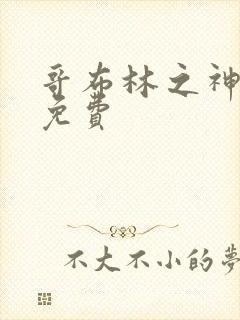 哥布林之神
免費
不大不小的夢